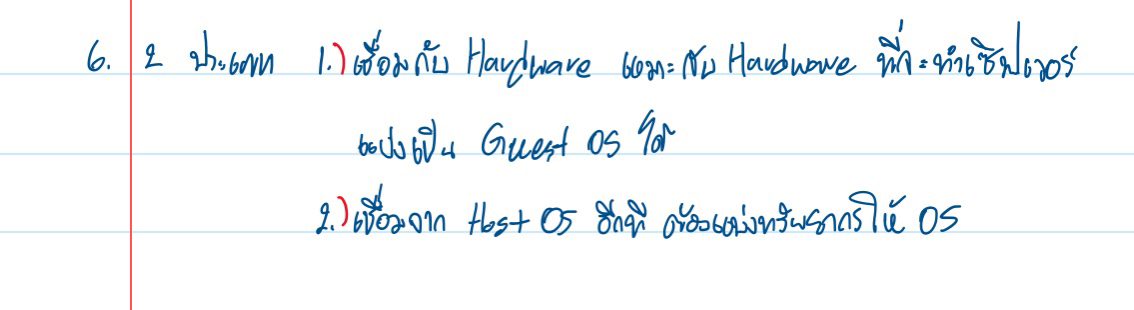 6. 2 ประเภท 1.) เชื่อมกับ Hardware เหมาะกับ Hardware ที่จะทำเซิฟเวอร์
แบ่งเป็น Guest OS ได้
2.) เชื่อมจาก Host OS อีกที ต้องแบ่งทรัพยากรให้ OS